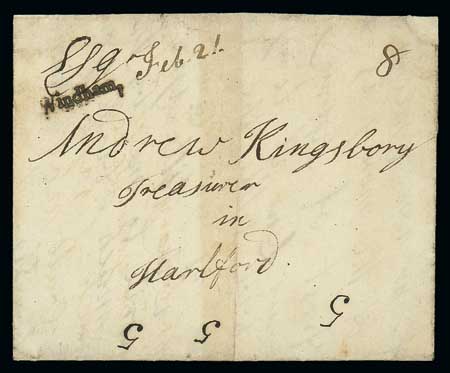 Esqr Feb. 21. 8
Windham,
Andrew Kingsbory
Treasurer
in
Hartford.
5 5 5